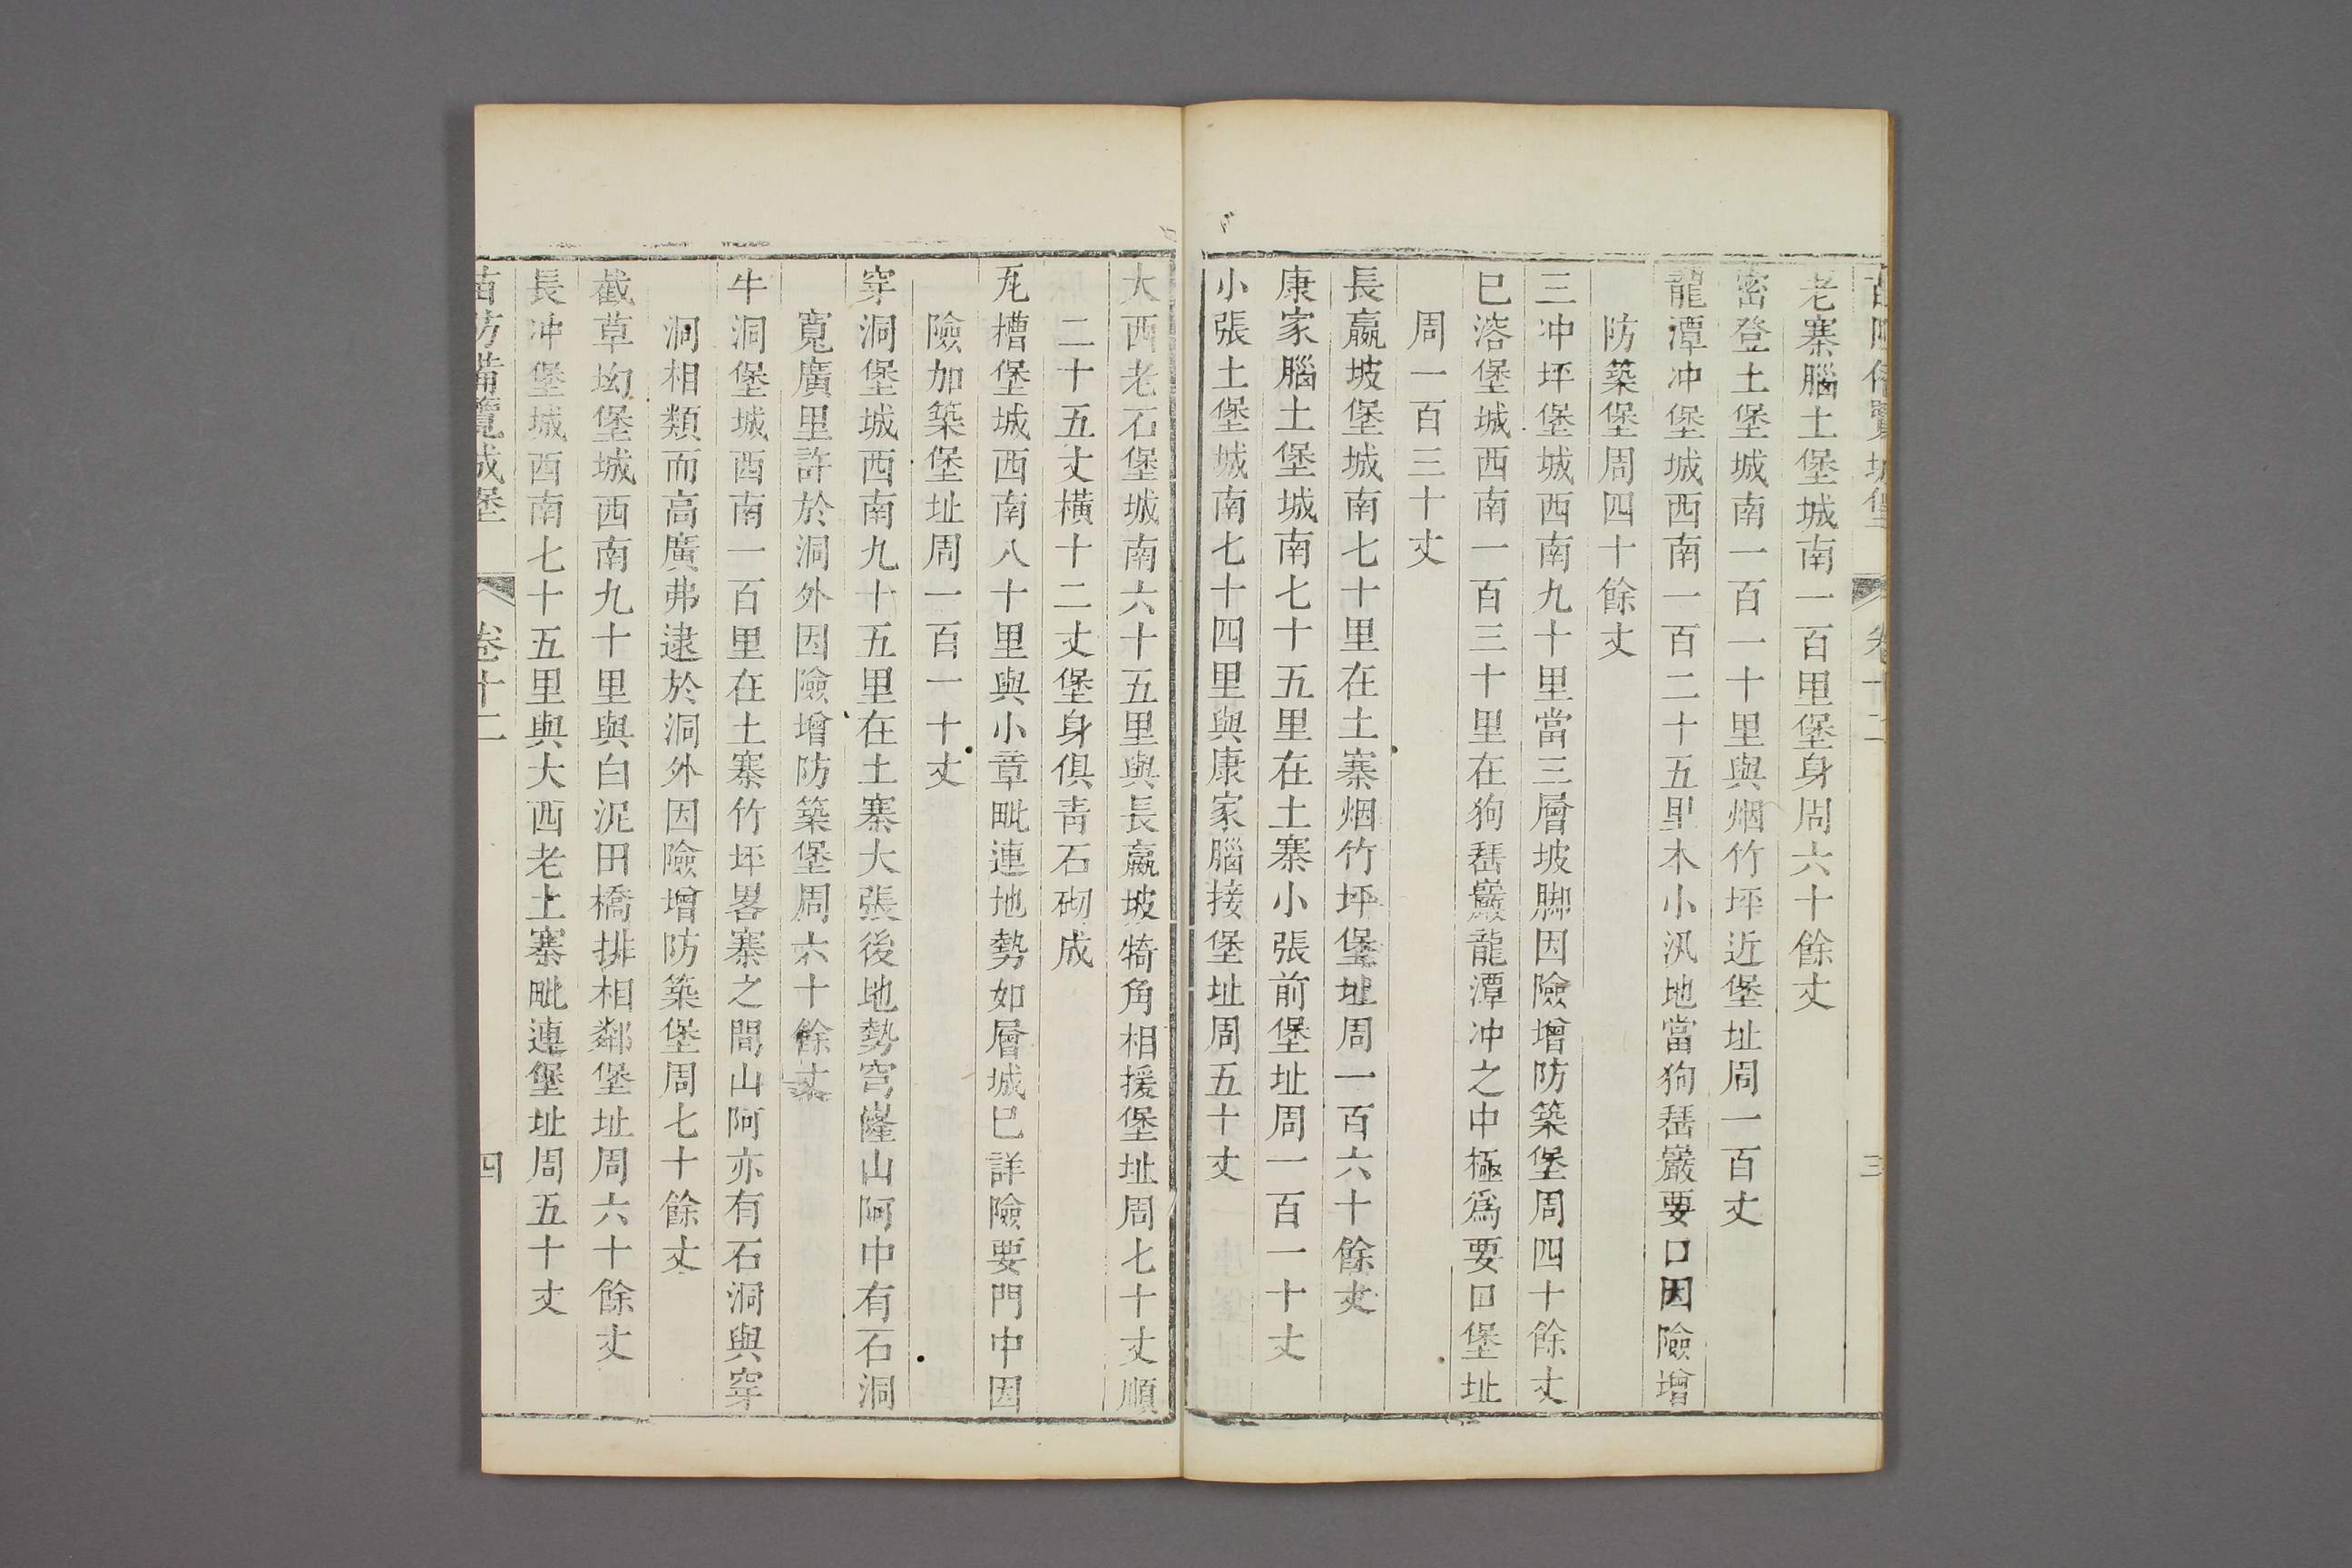 老寨腦土堡城南一百里堡身周六十餘丈
密登土堡城南一百一十里與烟竹坪近堡址周一百丈
龍潭冲堡城西南一百二十五里木小汛地當狗㟂巖要口因險增
防築堡周四十餘丈
三冲坪堡城西南九十里當三層坡脚因險增防築堡周四十餘丈
巳溶堡城西南一百三十里在狗㟂巖龍潭冲之中極爲要口堡址
周一百三十丈
長嬴坡堡城南七十里在土寨烟竹坪堡址周一百六十餘丈
康家腦土堡城南七十五里在土寨小張前堡址周一百一十丈
小張土堡城南七十四里與康家腦接堡址周五十丈
大西老石堡城南六十五里與長嬴坡犄角相援堡址周七十丈順
二十五丈橫十二丈堡身俱靑石砌成
尫槽堡城西南八十里與小章毗連地勢如層城巳詳險要門中因
險加築堡址周一百一十丈
穿洞堡城西南九十五里在土寨大張後地勢穹窿山阿中有石洞
寬廣里許於洞外因險增防築堡周六十餘丈
牛洞堡城西南一百里在土寨竹坪畧寨之間山阿亦有石洞與穿
洞相類而高廣弗逮於洞外因險增防築堡周七十餘丈
截草㘭堡城西南九十里與白泥田橋排相鄰堡址周六十餘丈
長冲堡城西南七十五里與大西老土寨毗連堡址周五十丈
苗防備覽城堡 卷十二 四